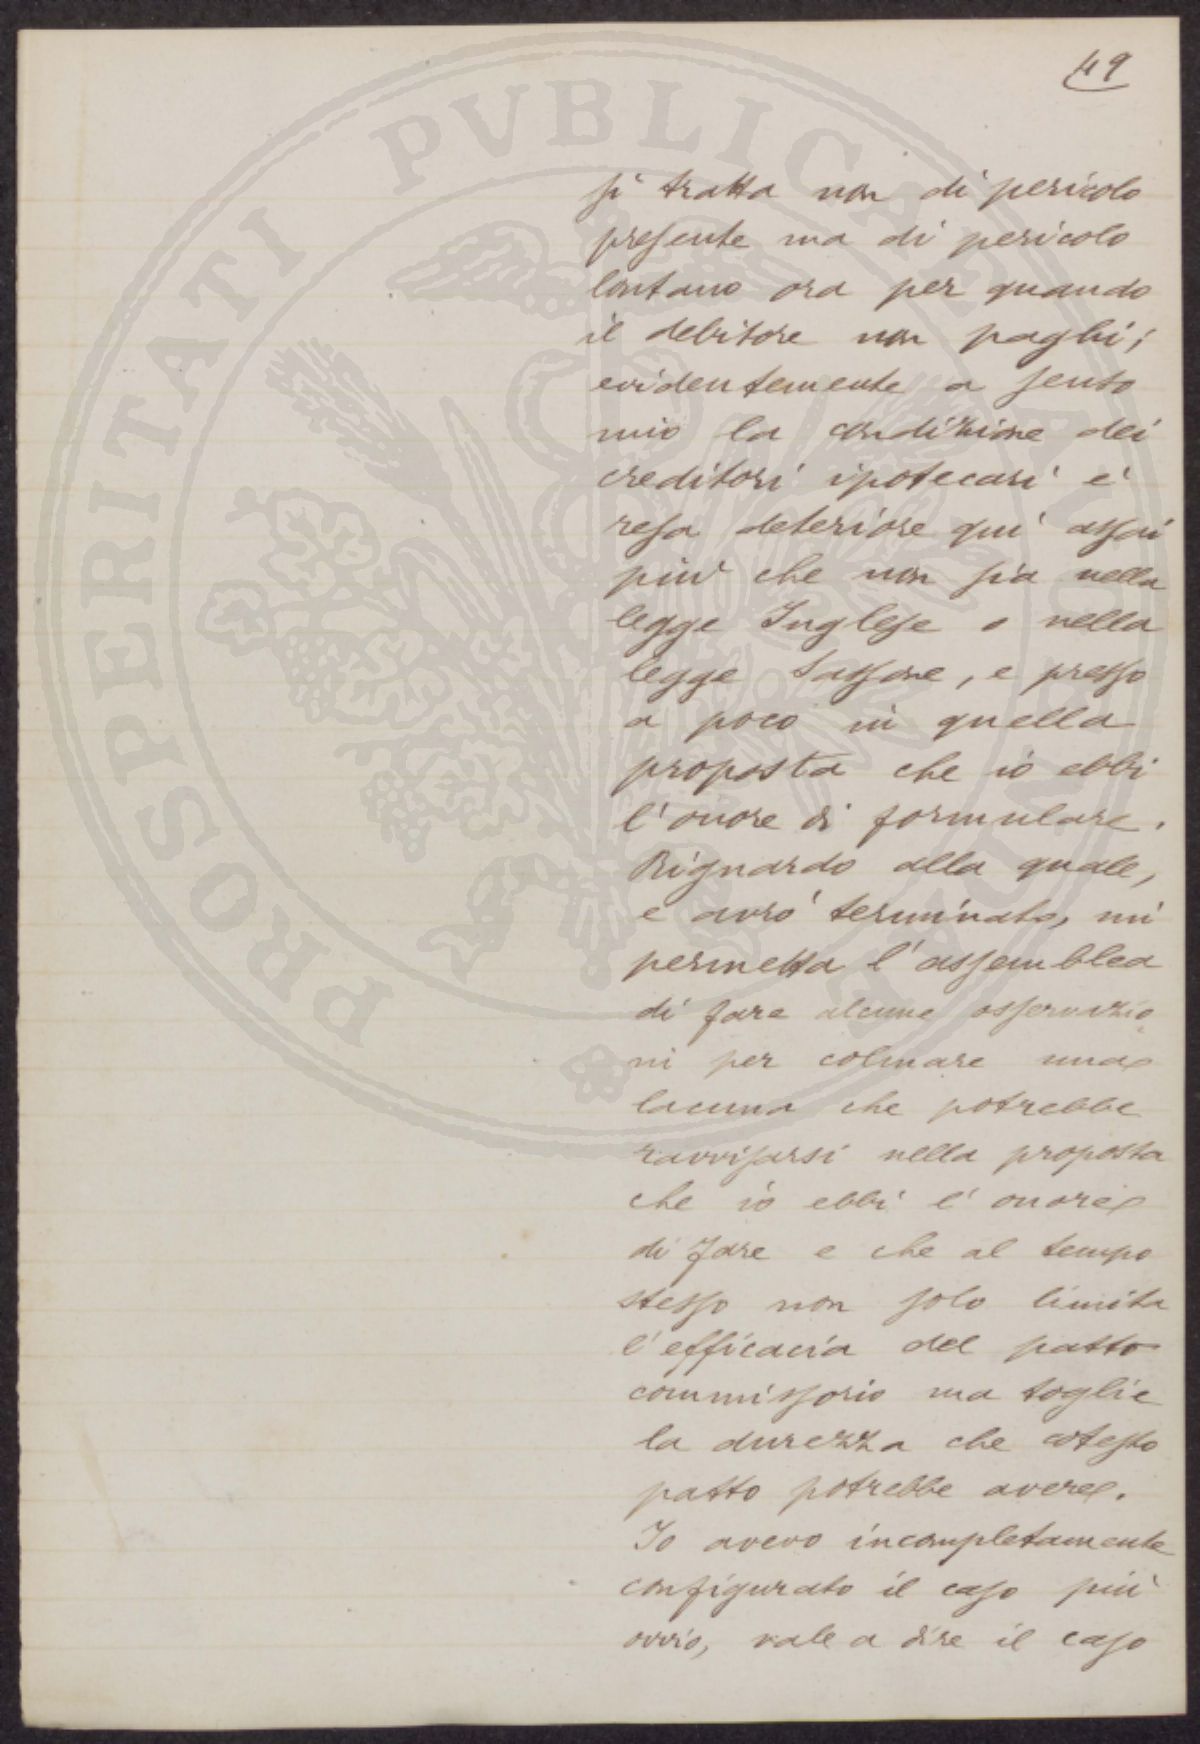 49
si tratta non di pericolo
presente ma di pericolo
lontano ora per quando
il debitore non paghi;
evidentemente a senso
mio la condizione dei
creditori ipotecari è
resa deteriore qui assai
più che non sia nella
legge Inglese o nella
legge Sassone, e presso
a poco in quella
proposta che io ebbi
l'onore di formulare.
Riguardo alla quale,
e avrò terminato, mi
permetta l'assemblea
di fare alcune osservazio
ni per colmare una
lacuna che potrebbe
ravvisarsi nella proposta
che io ebbi l'onore
di fare e che al tempo
stesso non solo limita
l'efficacia del patto
commissorio ma toglie
la durezza che cotesto
patto potrebbe avere.
Io avevo incompletamente
configurato il caso più
ovvio, vale a dire il caso
PROSPERITATI PVBLICAE AVGENDAE